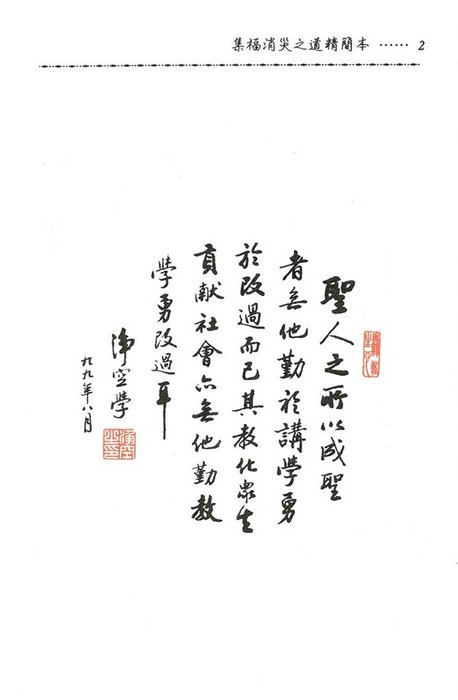 集福消災之道精簡本 …… 2
聖人之所以成聖
者無他勤於講學勇
於改過而已其教化眾生
貢獻社會亦無他勤教
學勇改過耳
淨空學
九九年八月